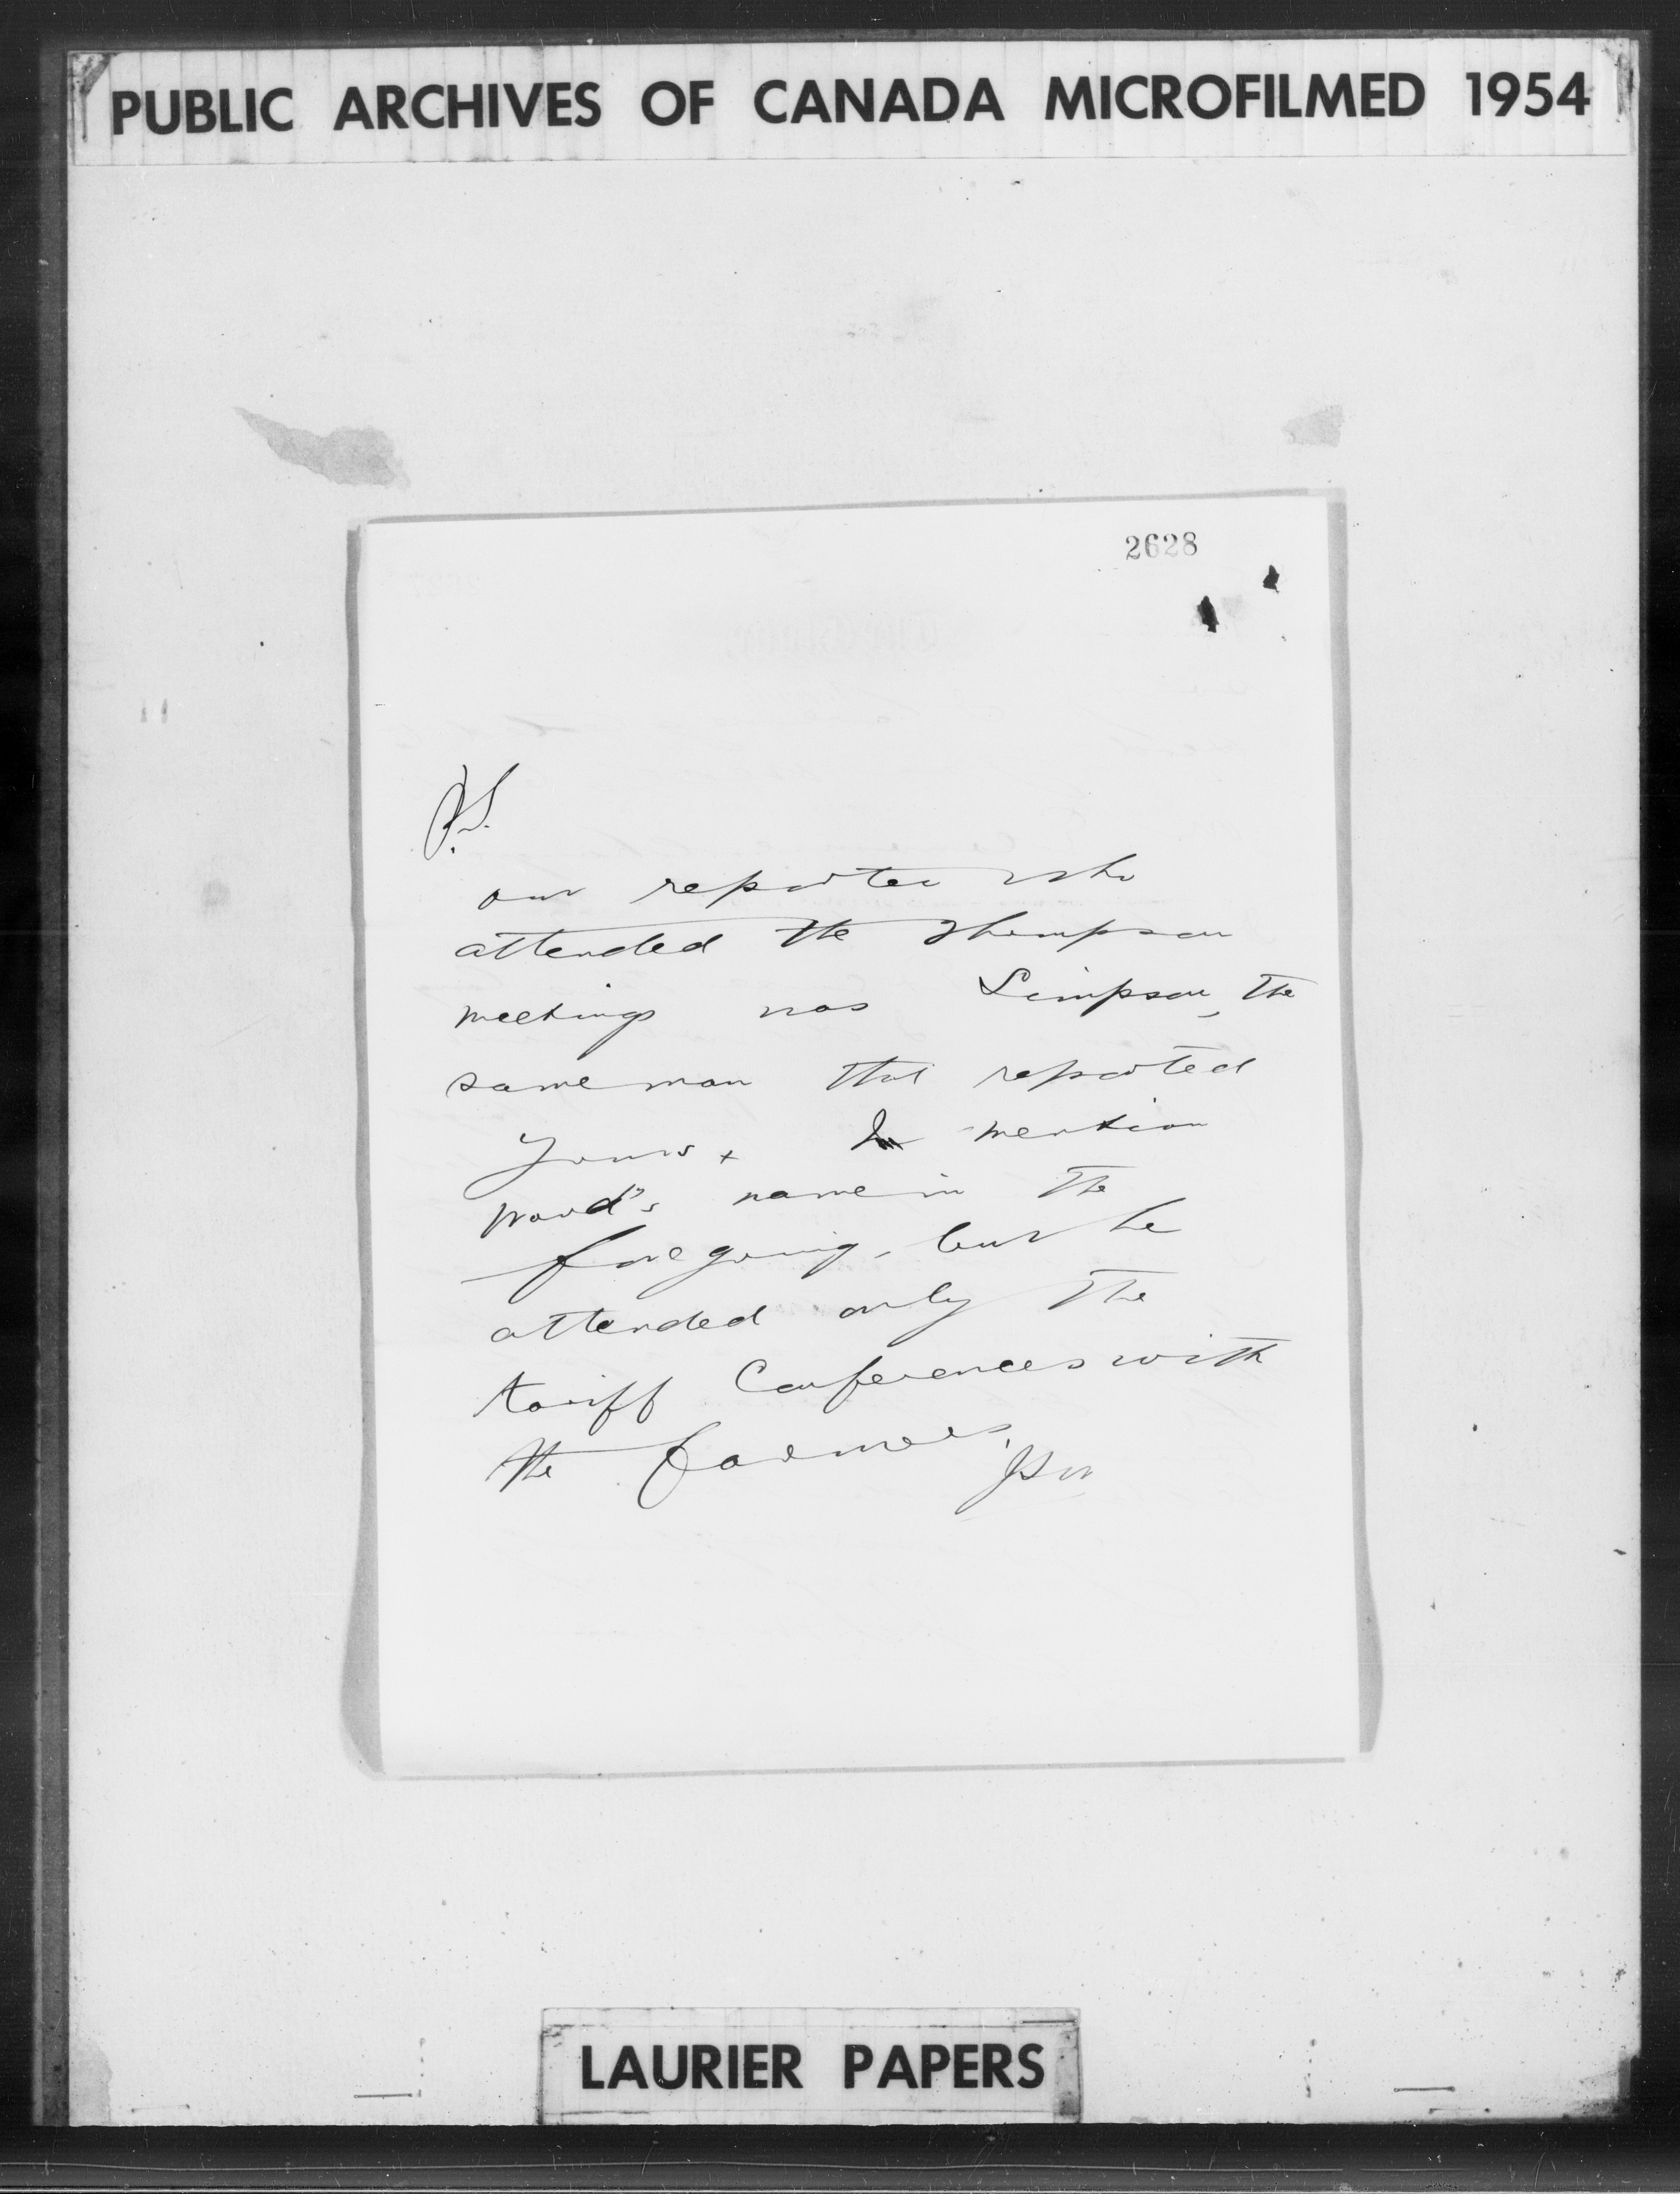 PUBLIC ARCHIVES OF CANADA MICROFILMED 1954
2628
P.S.
our reporter who
attended the Thompson
meetings was Simpson, the
same man that reported
yours + I mention
Wood's name in the
foregoing, but he
attended only the
tariff Conferences with
the farmers.
JSW
LAURIER PAPERS